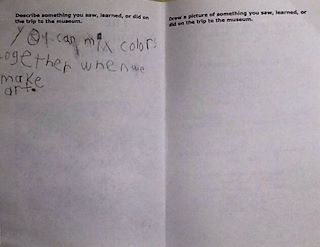 Describe something you saw, learned, or did on
the trip to the museum.
You can mix colors
together when we
make
art.
Draw a picture of something you saw, learned, or
did on the trip to the museum.